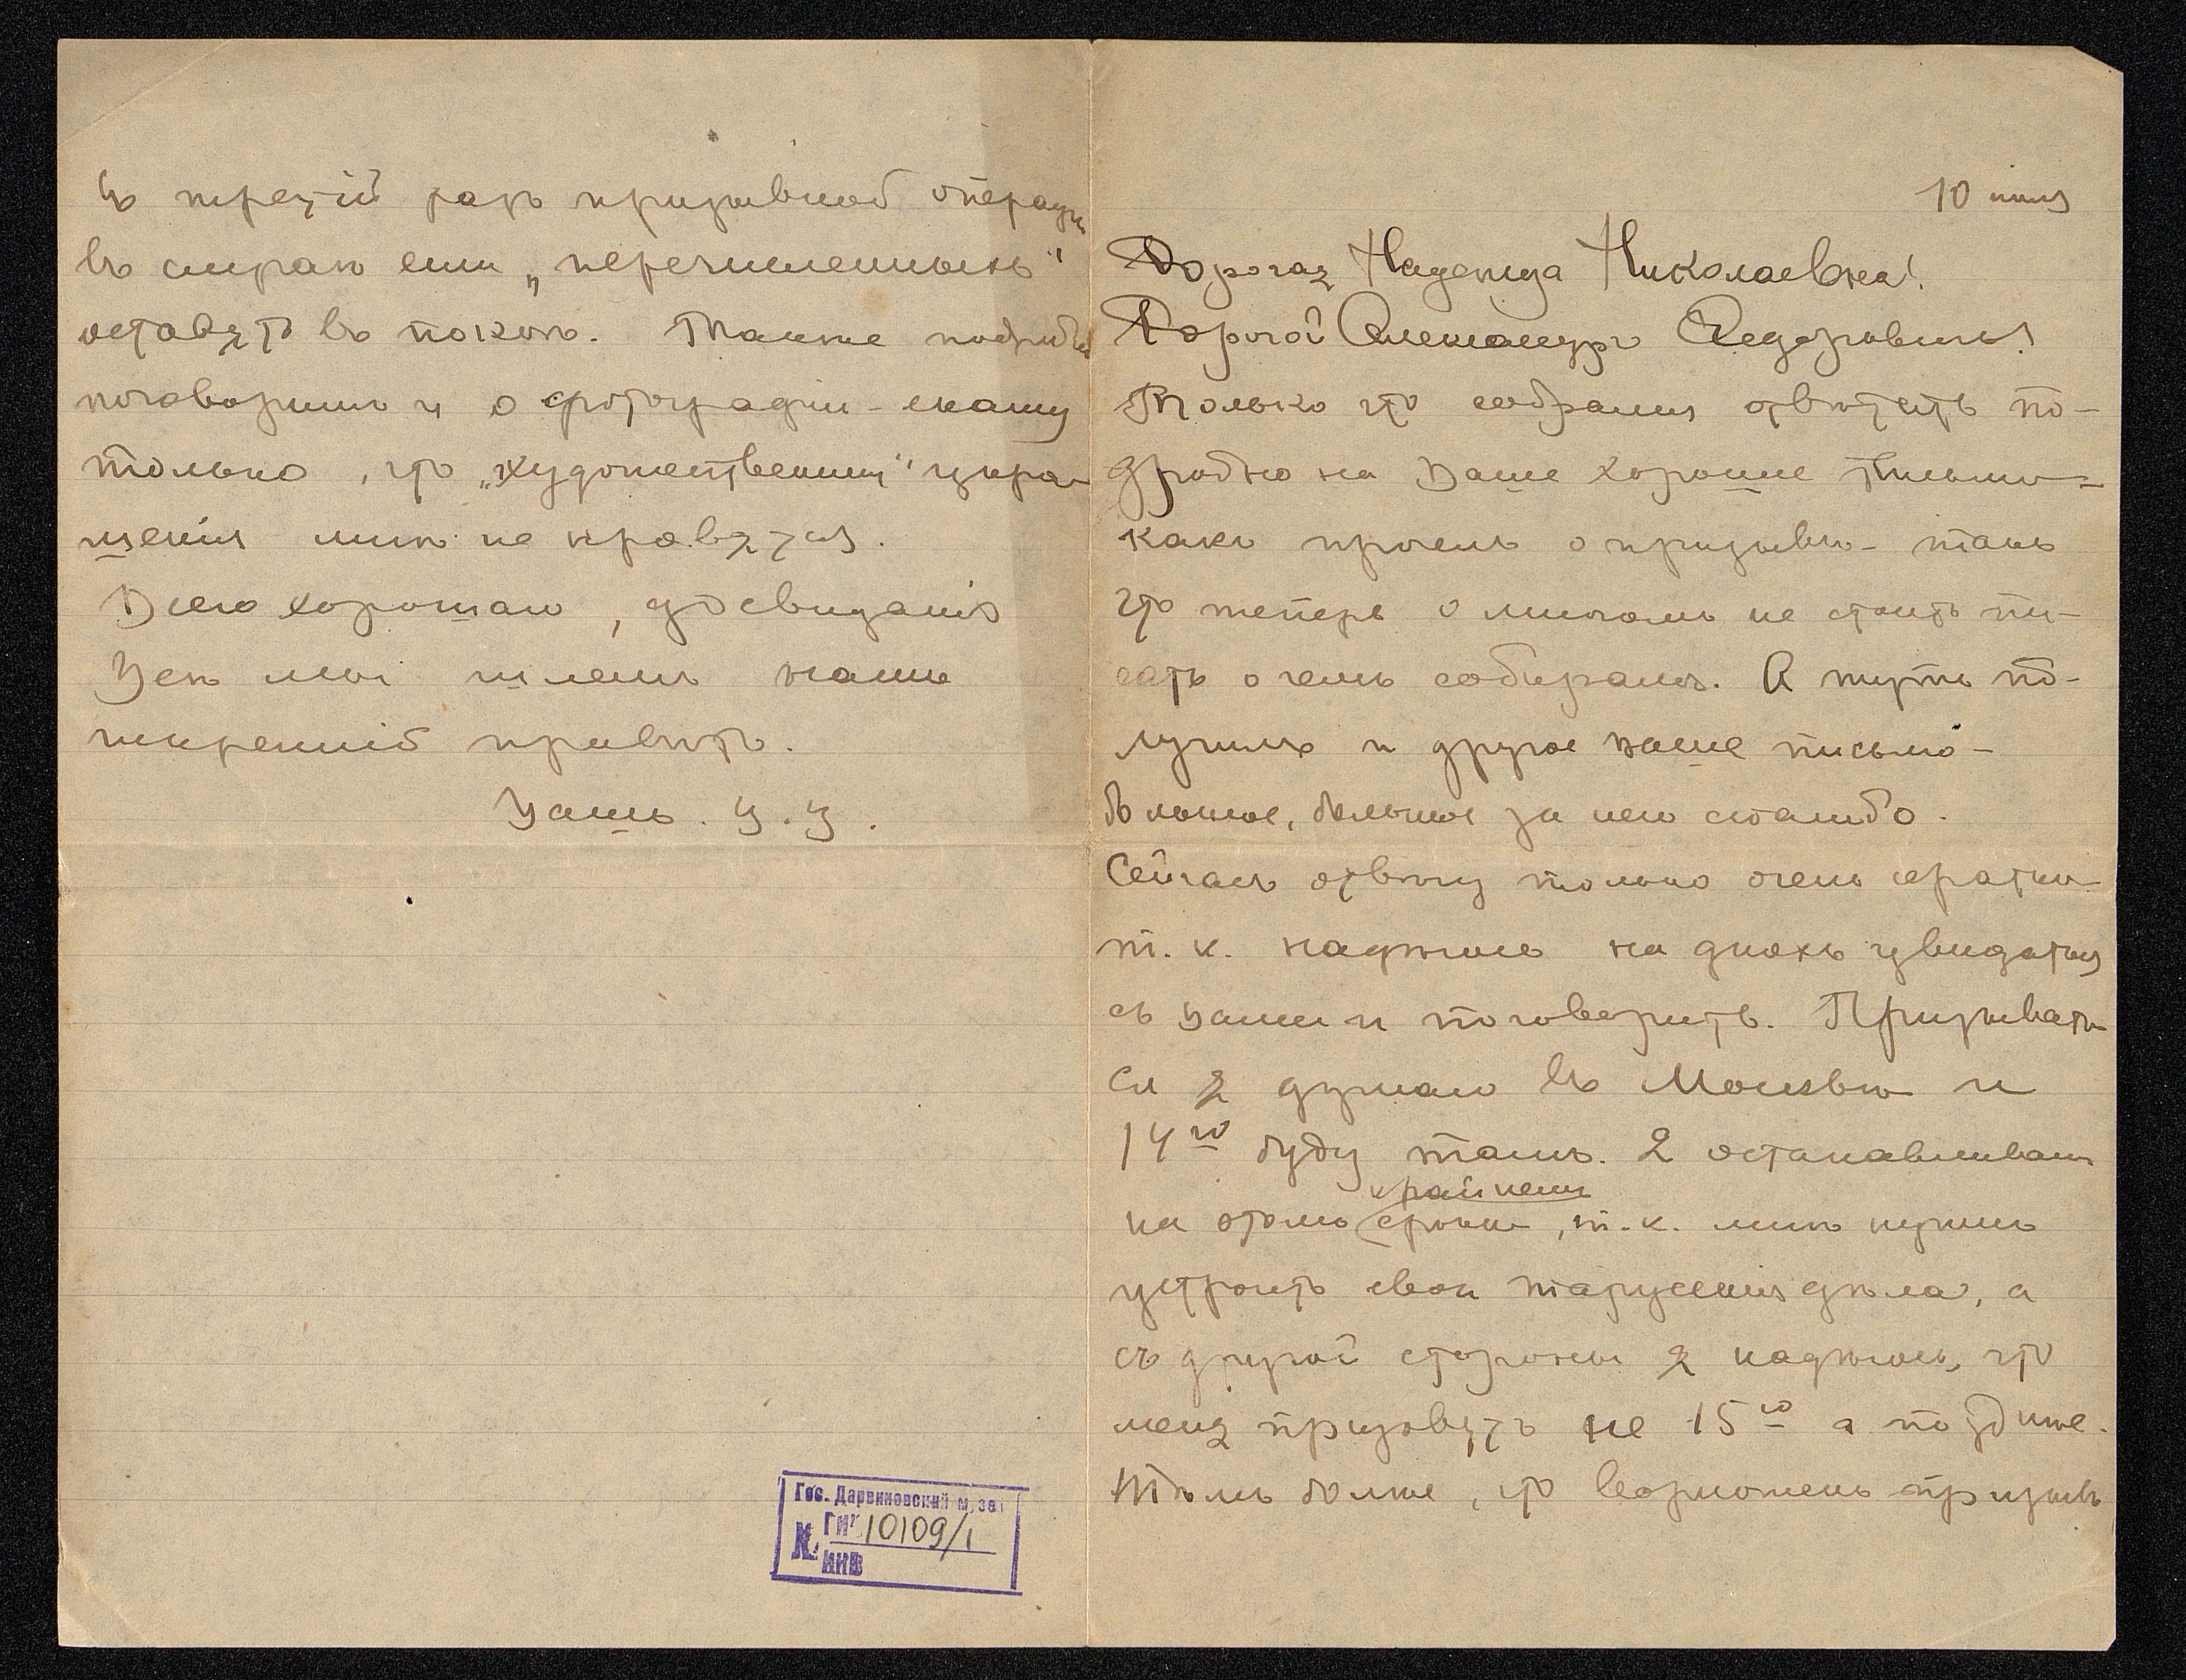 10 июля
Дорогая Надежда Николаевна!
Дорогой Александръ Федоровичъ!
Только что собрался отвѣтить по-
дробно на Ваше хорошее письмо -
какъ прочелъ о призывѣ - такъ
что теперь о многомъ не стоитъ пи-
сать о чемъ собирался. А тутъ по-
лучилъ и другое ваше письмо -
большое, большое за него спасибо.
Сейчасъ отвѣчу только очень кратко
т. к. надѣюсь на дняхъ увидаться
съ вами и поговорить. Призывать-
ся я думаю въ Москвѣ и
14го буду тамъ. Я останавливаюсь
на этомъ крайнемъ срокѣ, т. к. мнѣ нужно
устроить свои тарусскія дѣла, а
съ другой стороны я надѣюсь, что
меня призовутъ не 15го а позднѣе.
Тѣмъ болѣе, что возможенъ призывъ
въ третій разъ призывной операціи
въ строю или „перечисленныхъ"
оставятъ въ покоѣ. Также подробнѣй
поговоримъ и о фотографіи - скажу
только, что „художественныя" укра-
шенія мнѣ не нравятся.
Всего хорошаго, до свиданія
Всѣ мы шлемъ вамъ
искренній привѣтъ.
Вашъ. В. В.
Гос. Дарвиновский музей
№ ГИК 10109/1
ИНВ